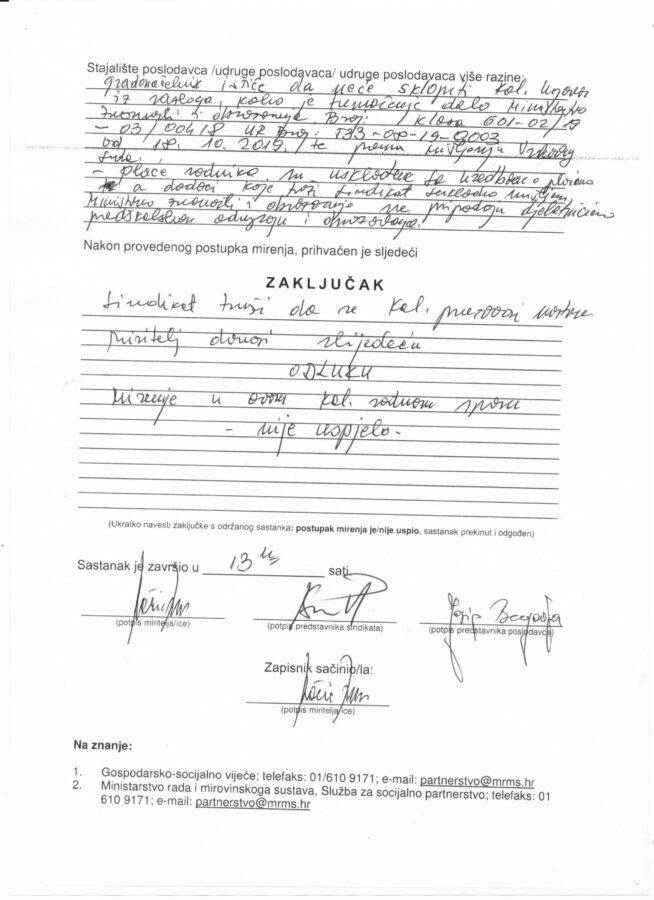 Stajalište poslodavca /udruge poslodavaca/ udruge poslodavaca više razine:
gradonačelnik ističe da neće sklopiti kol. ugovor
iz razloga, kako je
znanosti i obrazovanja, Broj: / Klasa 601-02/19
- 03/00418 UR Broj: 533-09-19-0003
od 18. 10. 2019. / te prema mišljenju Visokog
suda,
- plaće radnika su usklađene sa uredbom o plaćama
a dodaci koje traži sindikat sukladno mišljenju
Ministarstva znanosti i obrazovanja ne pripadaju djelatnicima
predškolskom odgoju i obrazovanja.
Nakon provedenog postupka mirenja, prihvaćen je sljedeći
ZAKLJUČAK
Sindikat traži da se kol. pregovori nastave
miritelj donosi slijedeću
ODLUKU
Mirenje u ovom kol. radnom sporu
- nije uspjelo -
(Ukratko navesti zaključke s održanog sastanka: postupak mirenja je/nije uspio, sastanak prekinut i odgođen)
Sastanak je završio u 13 sati
Josip Begonja
(potpis miritelja/ice) (potpis predstavnika sindikata) (potpis predstavnika poslodavca)
Zapisnik sačinio/la:
(potpis miritelja/ice)
Na znanje:
1. Gospodarsko-socijalno vijeće; telefaks: 01/610 9171; e-mail: partnerstvo@mrms.hr
2. Ministarstvo rada i mirovinskoga sustava, Služba za socijalno partnerstvo; telefaks: 01
610 9171; e-mail: partnerstvo@mrms.hr